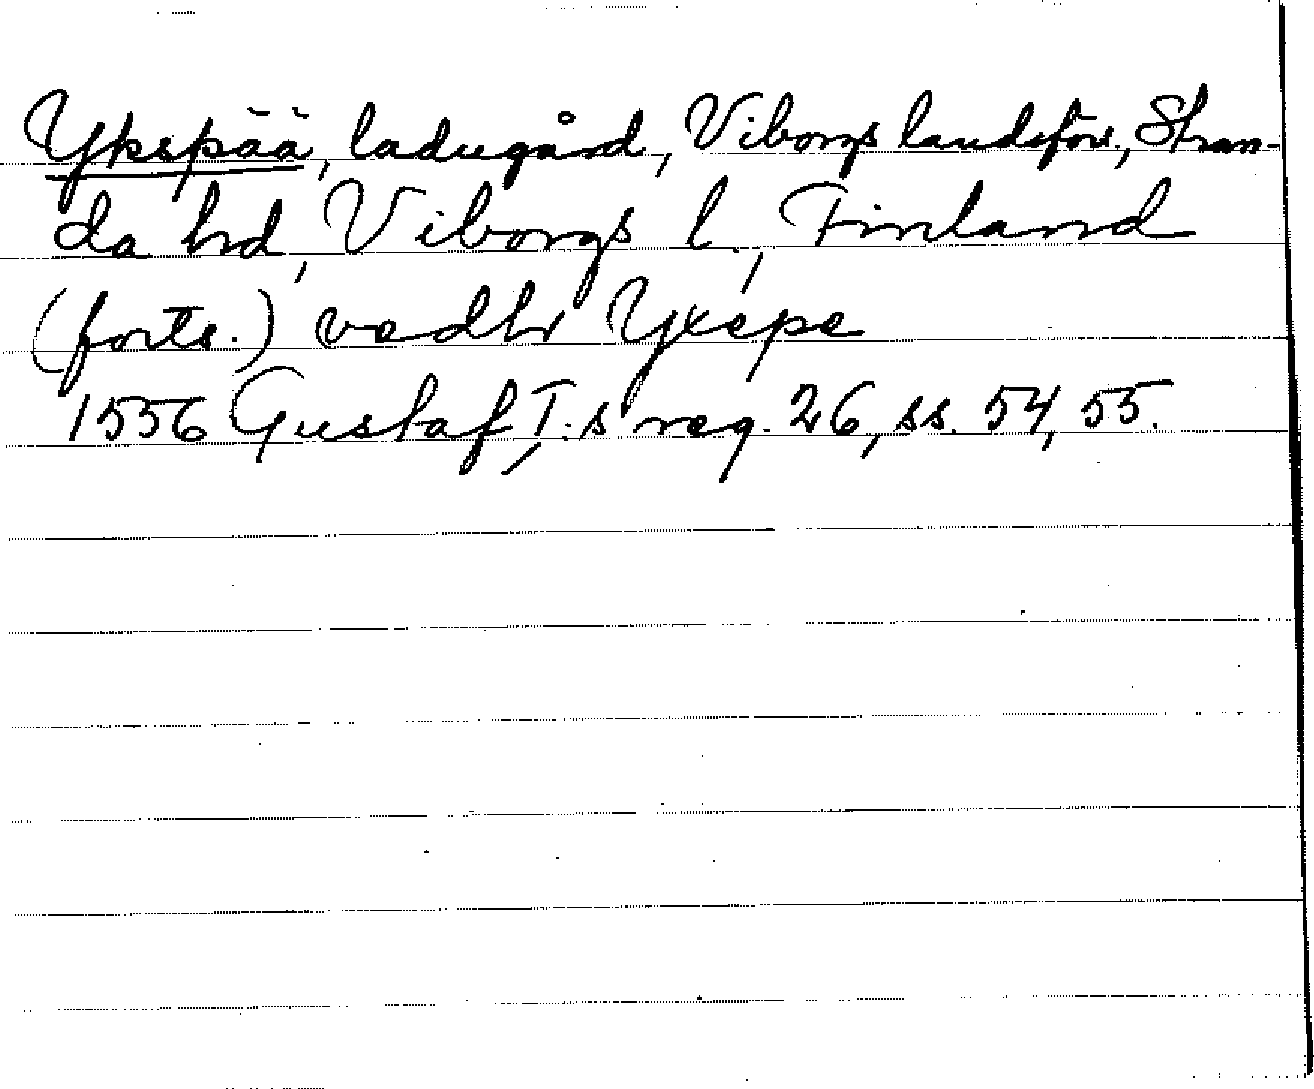 Ykspää, ladugård, Viborgs landsförs., Stran-
da hd, Viborgs l., Finland
(forts.) vedhr Yxepe
1556 Gustaf I:s reg. 26, ss. 54, 55.